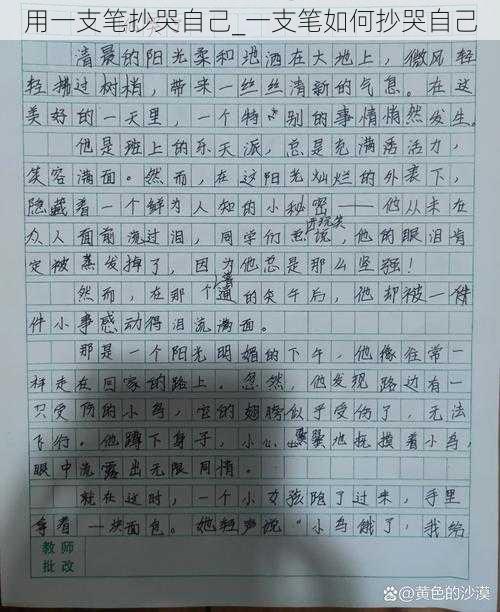 用一支笔抄哭自己_一支笔如何抄哭自己
清晨的阳光柔和地洒在大地上，微风轻
轻拂过树梢，带来一丝丝清新的气息。在这
美好的一天里，一个特别的事情悄然发生。
他是班上的乐天派，总是充满活力，
笑容满面。然而，在这阳光灿烂的外表下，
隐藏着一个鲜为人知的小秘密——他从未在
众人面前流过泪，同学们总开玩笑说，他的眼泪肯
定被蒸发掉了，因为他总是那么坚强！
然而，在那个普通的午后，他却被一件
件小事感动得泪流满面。
那是一个阳光明媚的下午，他像往常一
样走在回家的路上。忽然，他发现路边有一
只受伤的小鸟，它的翅膀似乎受伤了，无法
飞行。他蹲下身子，小心翼翼地抚摸着小鸟，
眼中流露出无限同情。
就在这时，一个小女孩跑了过来，手里
拿着一块面包。她轻声说“小鸟饿了，我给
教师
批改
@黄色的沙漠